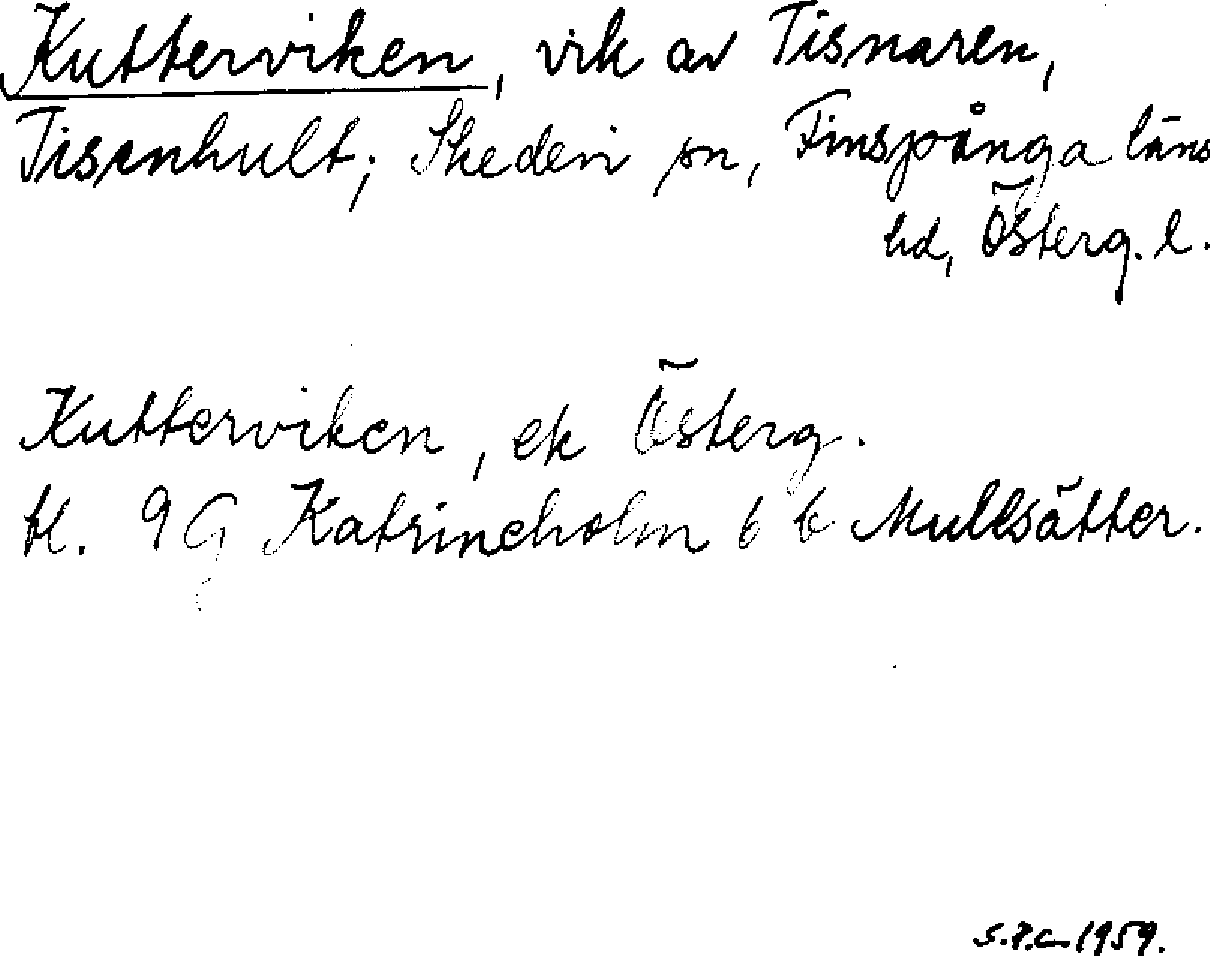 Kutterviken, vik av Tisnaren,
Tisenhult; Skedevi sn, Finspånga läns
hd, Österg. l.
Kutterviken, ek Österg.
bl. 9 G Katrineholm 6 b Mullsätter.
S.P.C. 1959.